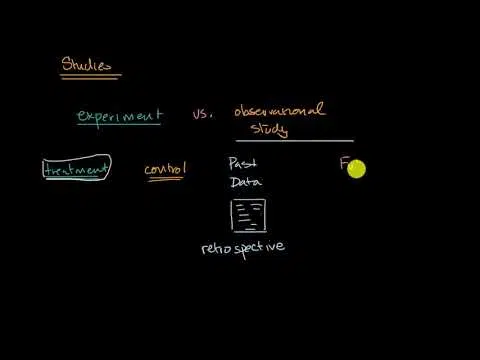 Studies
experiment vs. observational
study
treatment control Past F
Data
retrospective